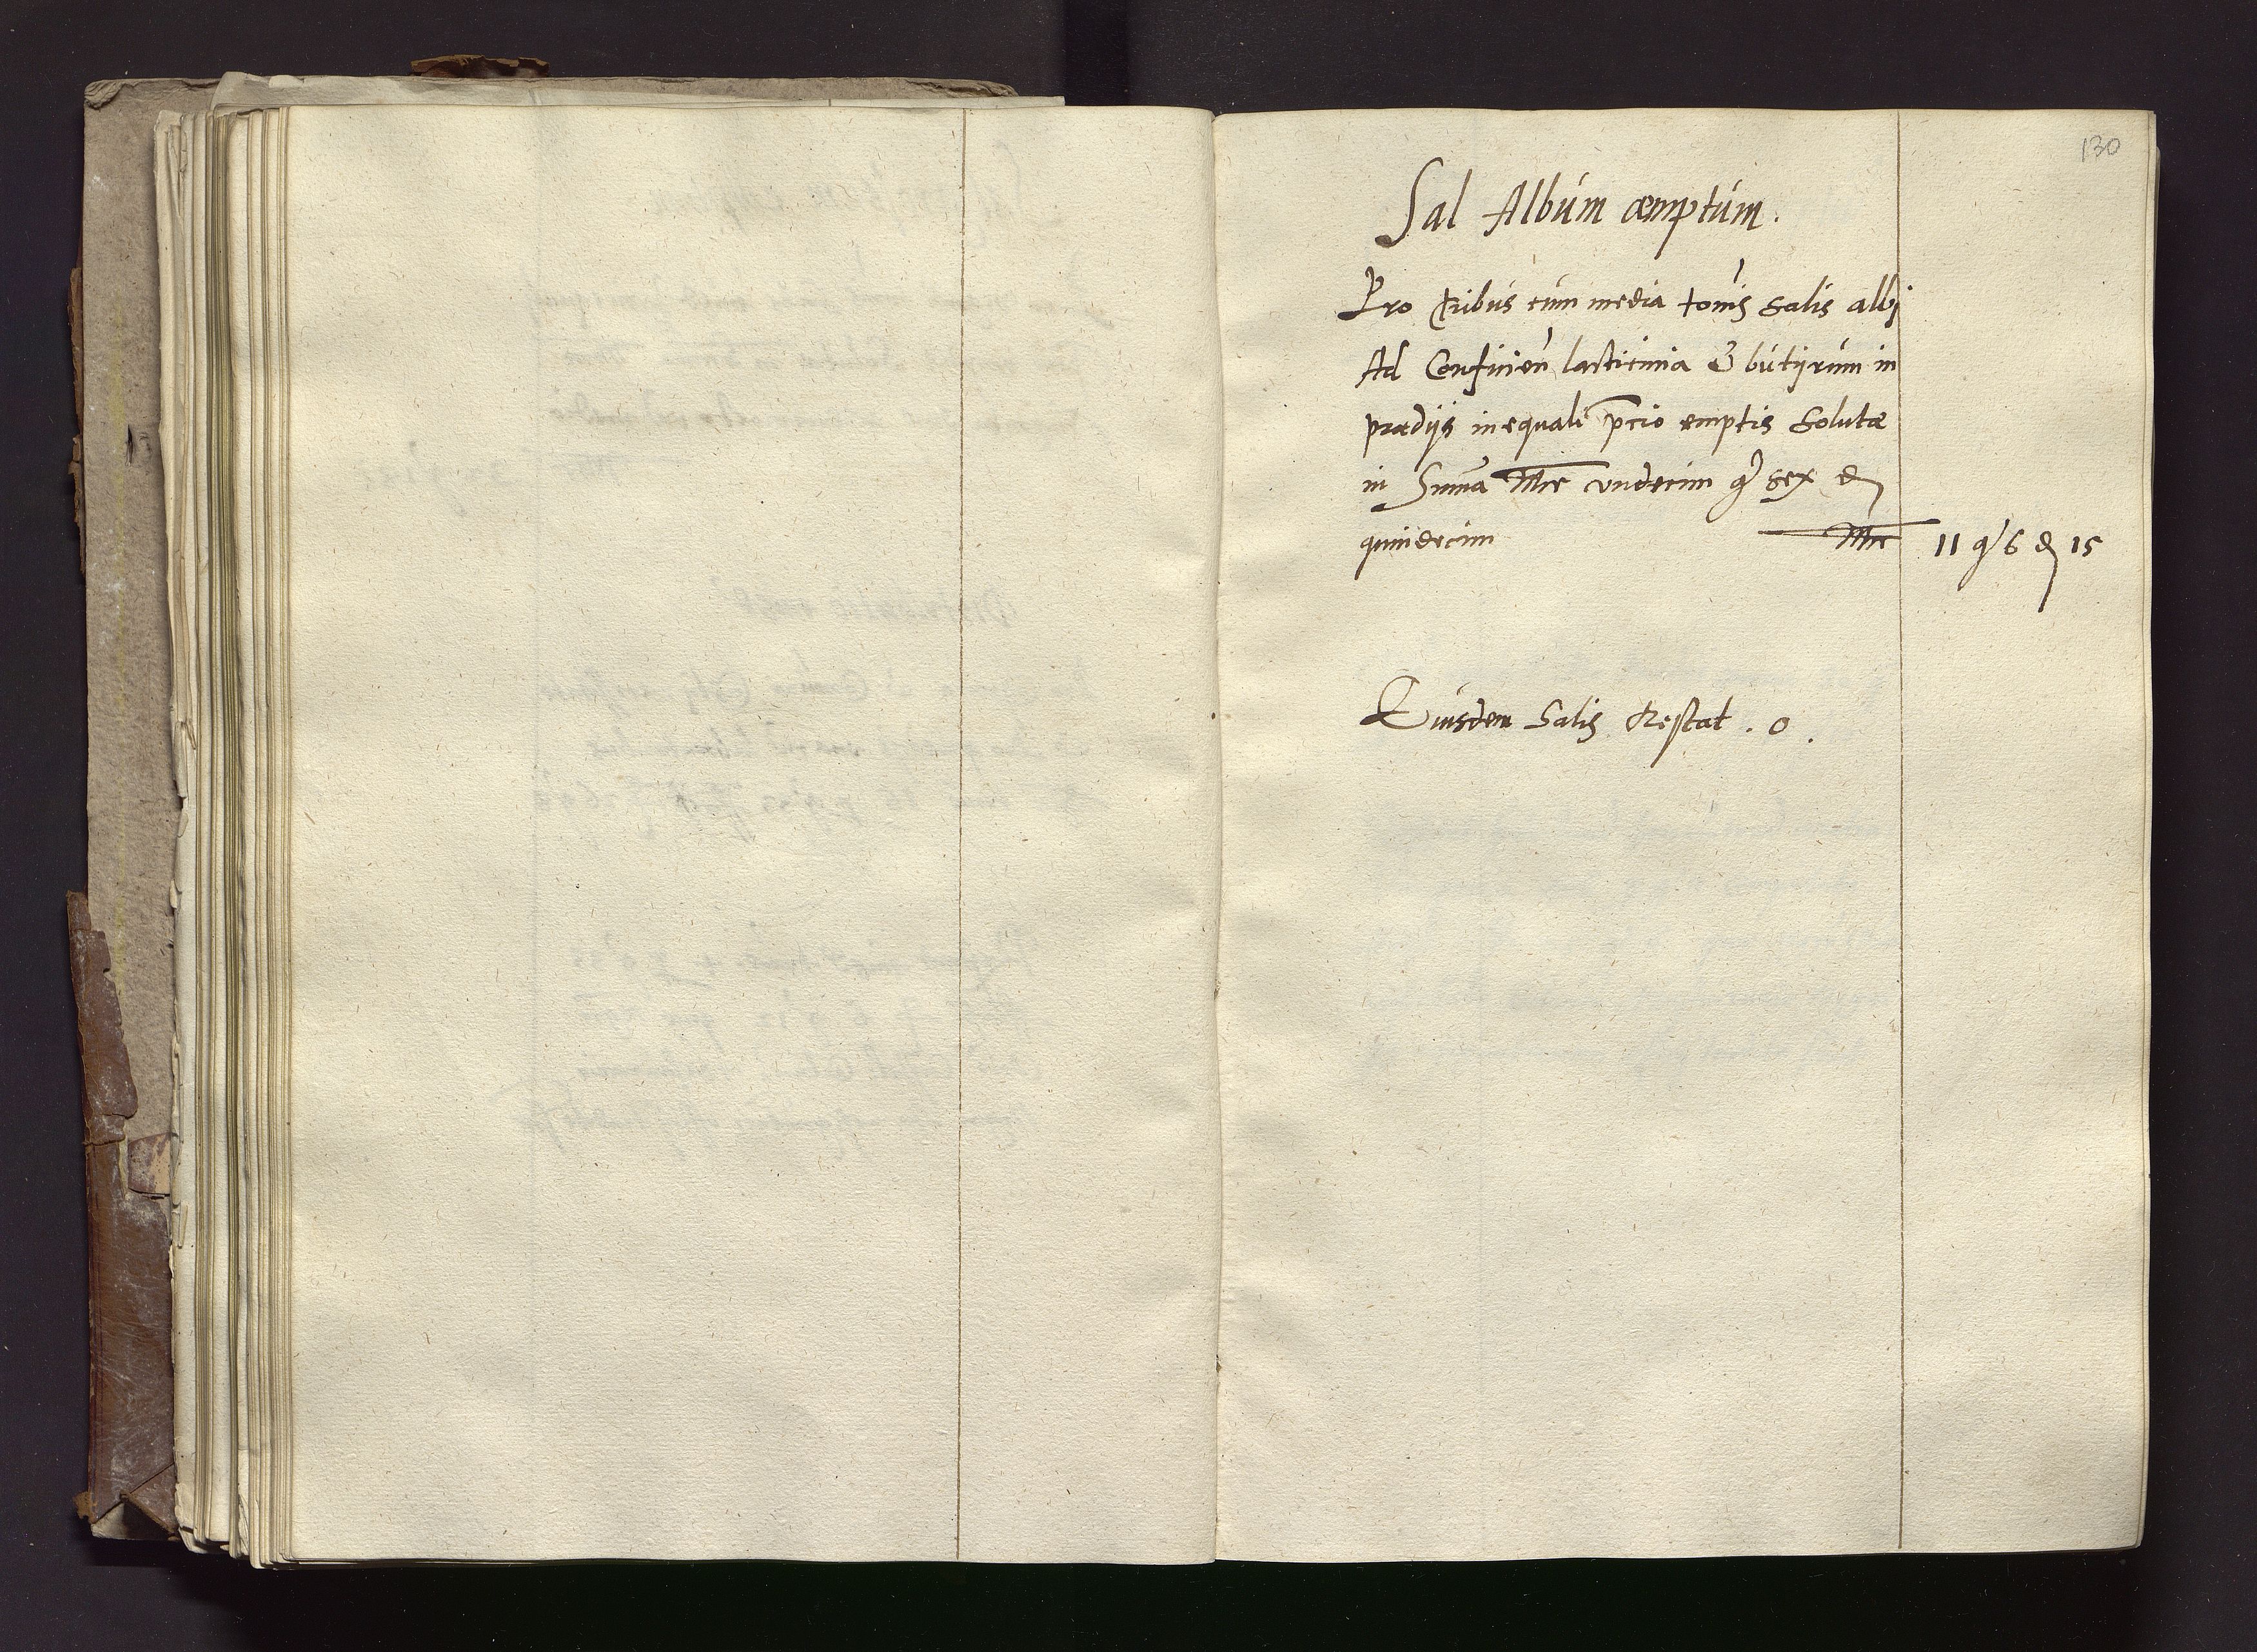 130
Sal Album æmptum.
Pro tribus cum media tonis salis albi
Ad Conficien lacticinia & butÿrum in
prædijs inequali pcio emptis solutæ
in Suma Mrc vndecim g sex d
quindecim Mrc 11 g 6 d 15
Eiusdem Salis Restat . 0 .